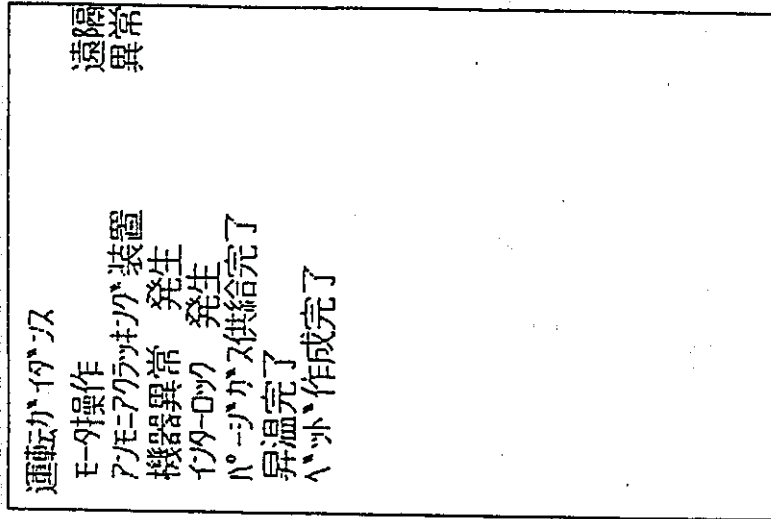 運転ｶﾞｲﾀﾞﾝｽ
ﾓｰﾀ操作 遠隔
ｱﾝﾓﾆｱｸﾗｯｷﾝｸﾞ装置 異常
機器異常 発生
ｲﾝﾀｰﾛｯｸ 発生
ﾊﾟｰｼﾞｶﾞｽ供給完了
昇温完了
ﾍﾞｯﾄﾞ作成完了